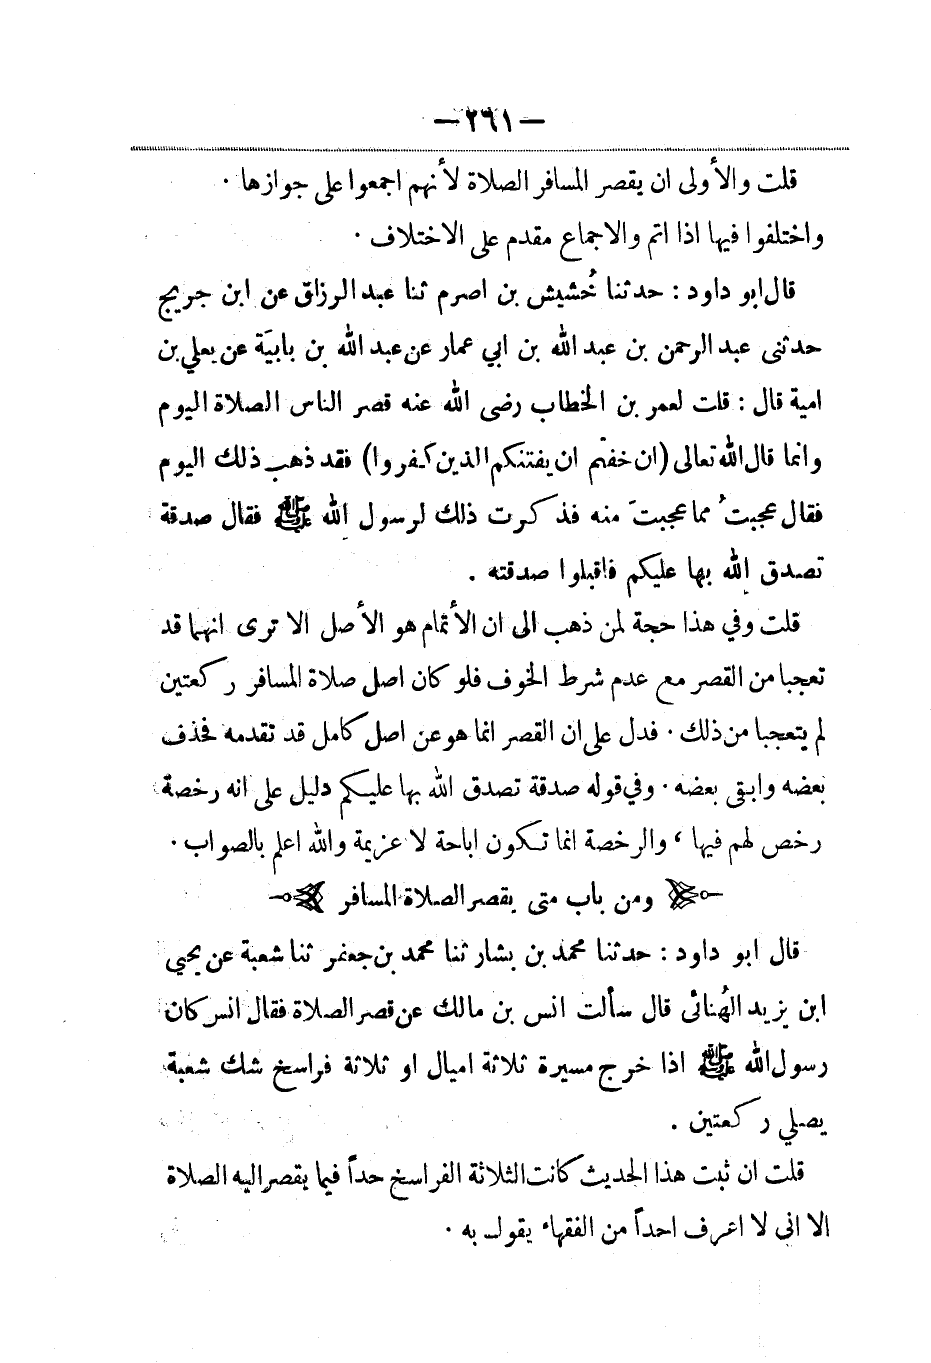 — ٢٦١ —
قلت والأولى ان يقصر المسافر الصلاة لأنهم اجمعوا على جوازها ·
واختلفوا فيها اذا اتم والاجماع مقدم على الاختلاف ·
قال ابو داود : حدثنا خُشيش بن اصرم ثنا عبد الرزاق عن ابن جريج
حدثنى عبد الرحمن بن عبد الله بن ابي عمار عن عبد الله بن بابيَة عن يعلي بن
امية قال : قلت لعمر بن الخطاب رضى الله عنه قصر الناس الصلاة اليوم
وانما قال الله تعالى (ان خفتم ان يفتنكم الذين كفروا) فقد ذهب ذلك اليوم
فقال عجبتُ مما عجبتَ منه فذكرت ذلك لرسول الله ﷺ فقال صدقة
تصدق الله بها عليكم فاقبلوا صدقته .
قلت وفي هذا حجة لمن ذهب الى ان الأتمام هو الأصل الا ترى انهما قد
تعجبا من القصر مع عدم شرط الخوف فلو كان اصل صلاة المسافر ركعتين
لم يتعجبا من ذلك · فدل على ان القصر انما هو عن اصل كامل قد تقدمه فحذف
بعضه وابقى بعضه · وفي قوله صدقة تصدق الله بها عليكم دليل على انه رخصة
رخص لهم فيها ، والرخصة انما تكون اباحة لا عزيمة والله اعلم بالصواب ·
ومن باب متى يقصر الصلاة المسافر
قال ابو داود : حدثنا محمد بن بشار ثنا محمد بن جعفر ثنا شعبة عن يحيي
ابن يزيد الهُنائى قال سألت انس بن مالك عن قصر الصلاة فقال انس كان
رسول الله ﷺ اذا خرج مسيرة ثلاثة اميال او ثلاثة فراسخ شك شعبة
يصلي ركعتين .
قلت ان ثبت هذا الحديث كانت الثلاثة الفراسخ حداً فيما يقصر اليه الصلاة
الا انى لا اعرف احداً من الفقهاء يقول به ·